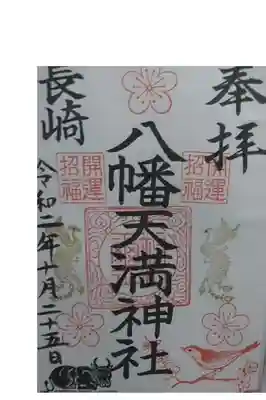 奉拝
開運
招福
八幡天満神社
開運
招福
長崎
令和二年十月二十五日